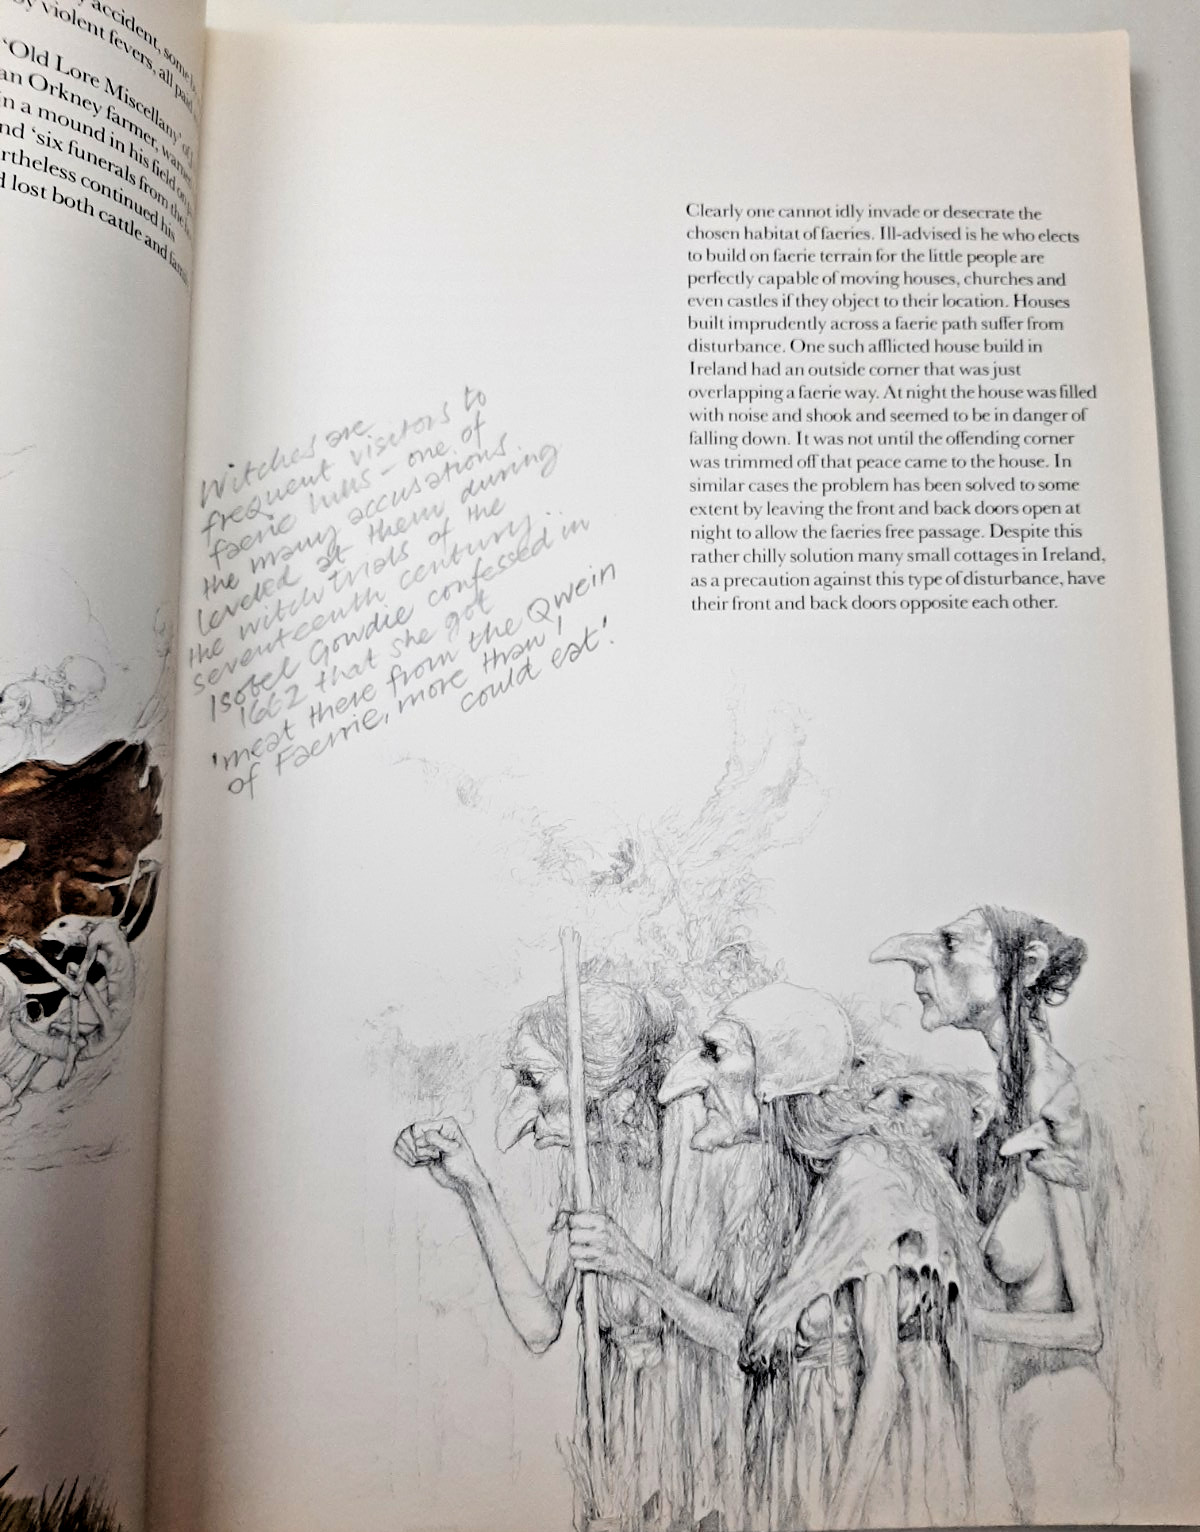 accident, some
by violent fevers, all paid
'Old Lore Miscellany' of
an Orkney farmer, warned
in a mound in his field on
and 'six funerals from the
rtheless continued his
lost both cattle and family
Clearly one cannot idly invade or desecrate the
chosen habitat of faeries. Ill-advised is he who elects
to build on faerie terrain for the little people are
perfectly capable of moving houses, churches and
even castles if they object to their location. Houses
built imprudently across a faerie path suffer from
disturbance. One such afflicted house build in
Ireland had an outside corner that was just
overlapping a faerie way. At night the house was filled
with noise and shook and seemed to be in danger of
falling down. It was not until the offending corner
was trimmed off that peace came to the house. In
similar cases the problem has been solved to some
extent by leaving the front and back doors open at
night to allow the faeries free passage. Despite this
rather chilly solution many small cottages in Ireland,
as a precaution against this type of disturbance, have
their front and back doors opposite each other.
Witches are
frequent visitors to
faerie hills - one of
the many accusations
leveled at them during
the witch trials of the
seventeenth century..
Isobel Gowdie confessed in
1662 that she got
'meat there from the Qwein
of Faerrie, more than I
could eat'.